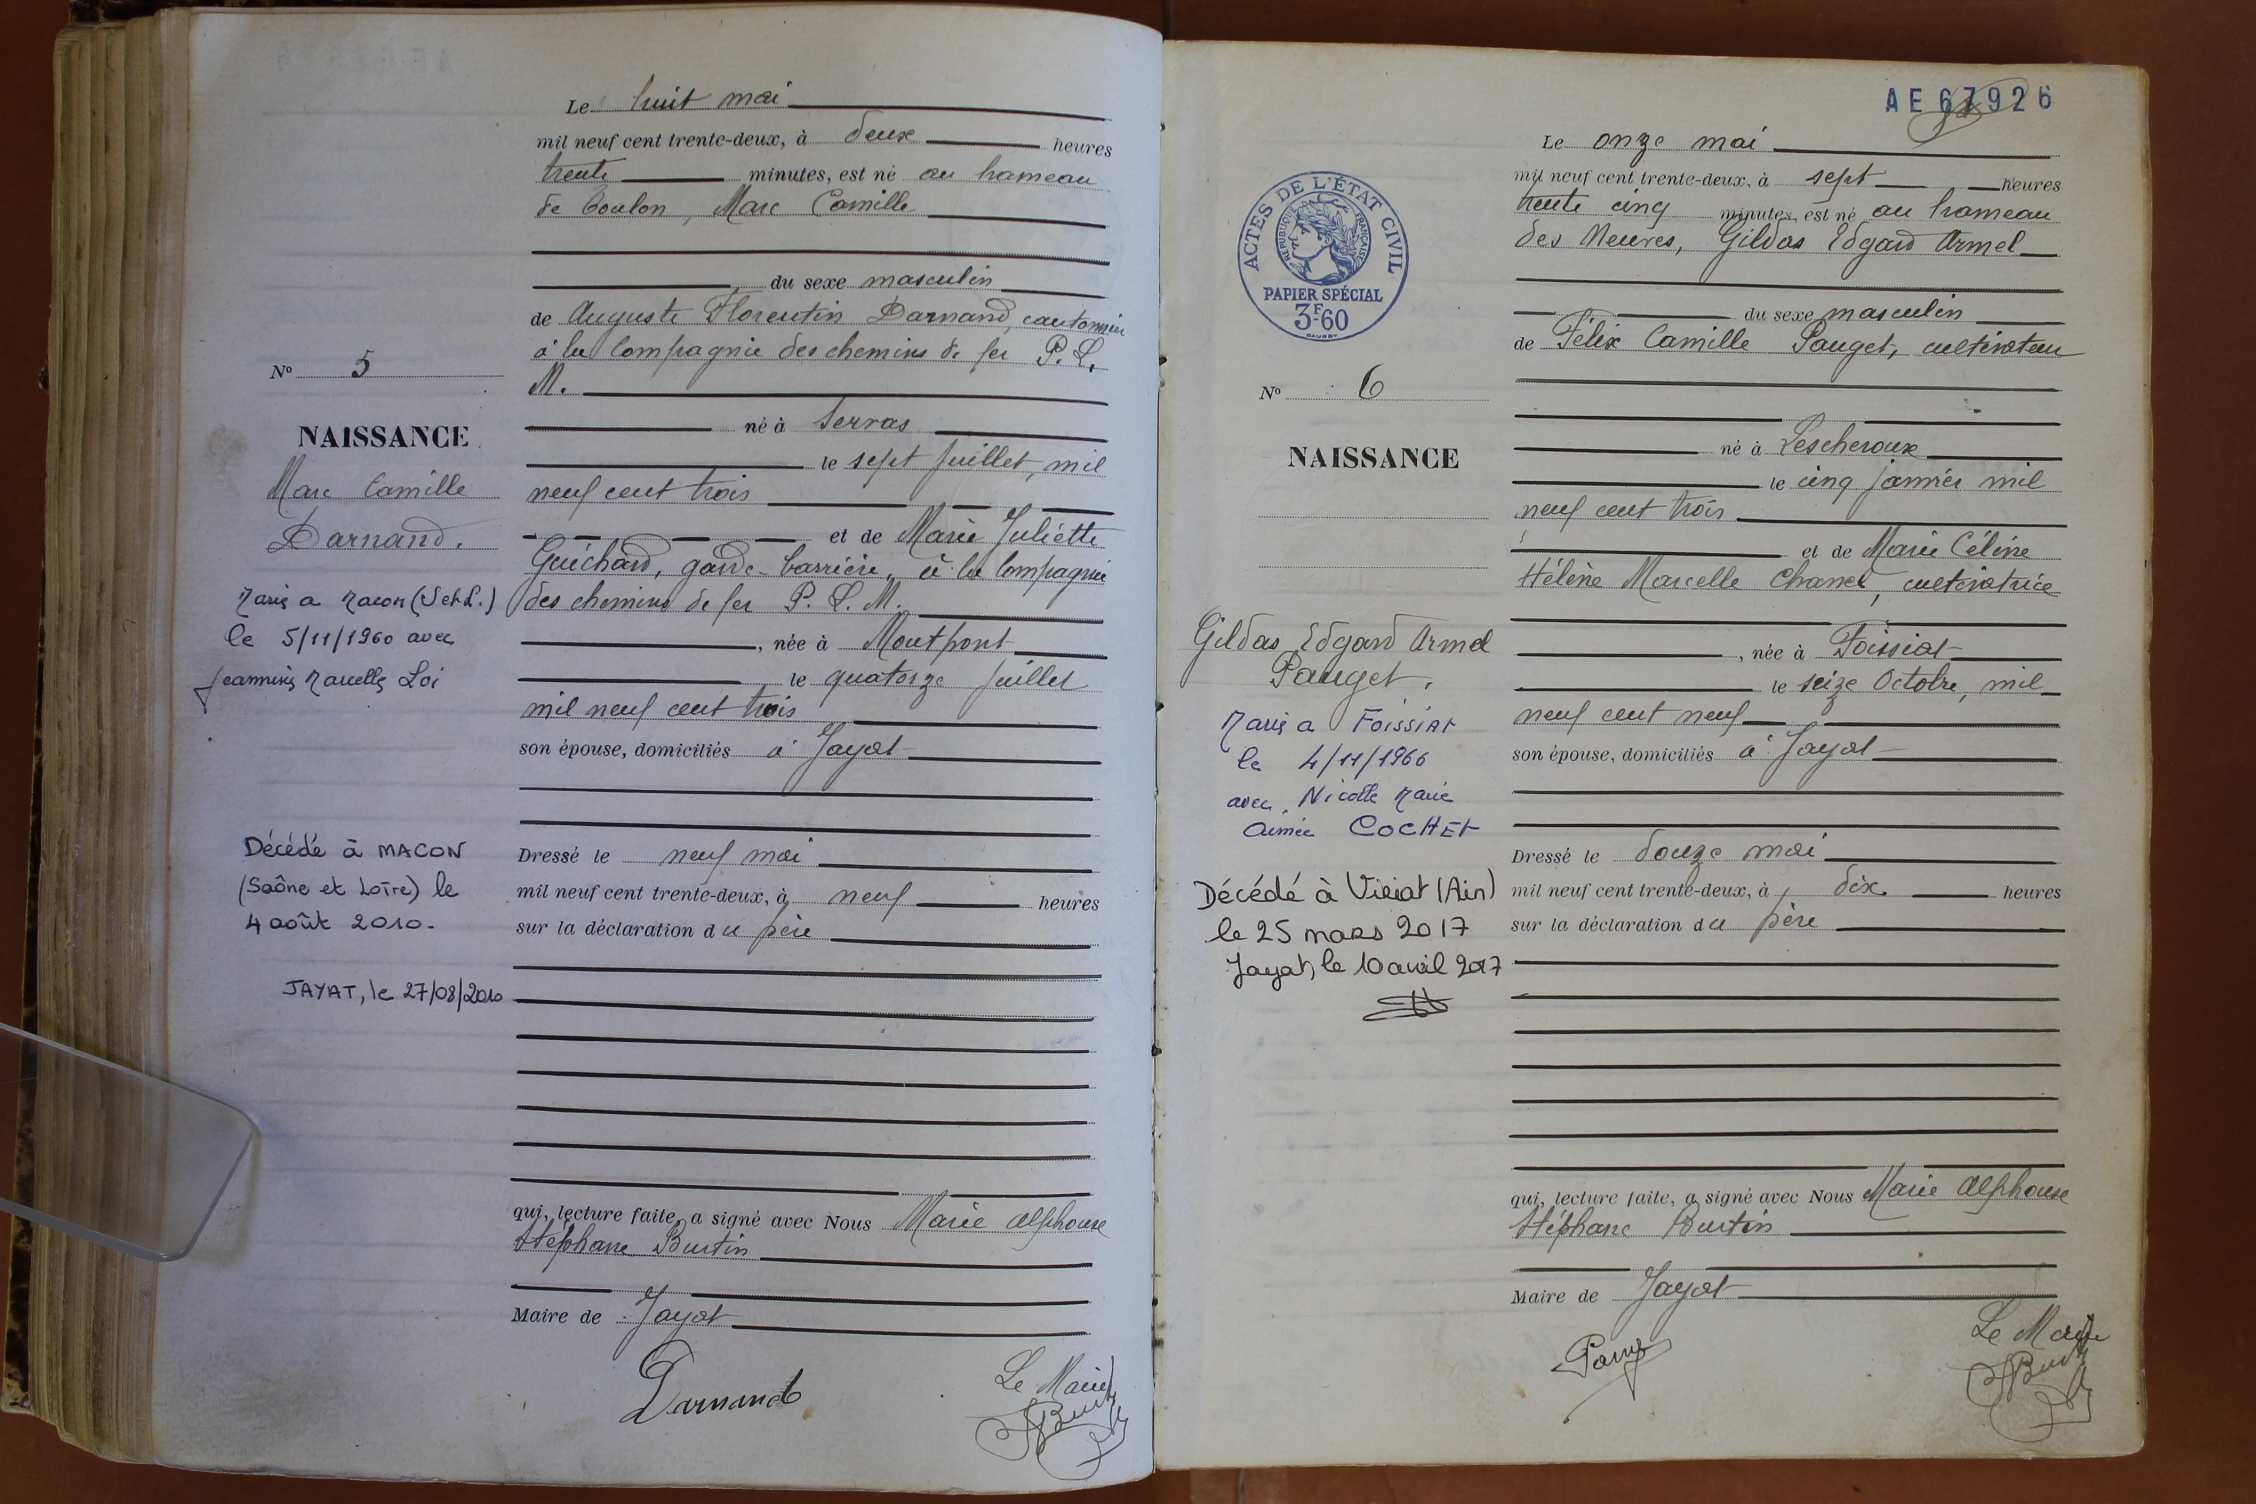 Le huit mai
mil neuf cent trente-deux, à deux heures
trente minutes, est né au hameau
de Coulon, Marc Camille
du sexe masculin
de Auguste Florentin Darnand, cantonnier
à la Compagnie des chemins de fer P. L.
M.
né à Servas
le sept juillet, mil
neuf cent trois
et de Marie Juliette
Guichard, garde-barrière, à la Compagnie
des chemins de fer P. L. M.
, née à Montpont
le quatorze juillet
mil neuf cent trois
son épouse, domiciliés à Jayat
Dressé le neuf mai
mil neuf cent trente-deux, à neuf heures
sur la déclaration du père
qui, lecture faite, a signé avec Nous Marie Alphonse
Stéphane Burtin
Maire de Jayat
Darnand
Le Maire
Nº 5
NAISSANCE
Marc Camille
Darnand.
Marié a Macon (S et L.)
le 5/11/1960 avec
Jeannine Marcelle Loi
Décédé à MACON
(Saône et Loire) le
4 août 2010.
JAYAT, le 27/08/2010
AE 67926
Le onze mai
mil neuf cent trente-deux, à sept heures
trente cinq minutes, est né au hameau
des Meures, Gildas Edgard Armel
du sexe masculin
de Félix Camille Pauget, cultivateur
né à Lescheroux
le cinq janvier mil
neuf cent trois
et de Marie Céline
Hélène Marcelle Chanel, cultivatrice
, née à Foissiat
le seize Octobre, mil
neuf cent neuf
son épouse, domiciliés à Jayat
Dressé le douze mai
mil neuf cent trente-deux, à dix heures
sur la déclaration du père
qui, lecture faite, a signé avec Nous Marie Alphonse
Stéphane Burtin
Maire de Jayat
Le Maire
ACTES DE L'ÉTAT CIVIL
RÉPUBLIQUE FRANÇAISE
PAPIER SPÉCIAL
3F60
Nº 6
NAISSANCE
Gildas Edgard Armel
Pauget.
Marié a FOISSIAT
le 4/11/1966
avec Nicolle Marie
Aimée COCHET
Décédé à Viriat (Ain)
le 25 mars 2017
Jayat, le 10 avril 2017